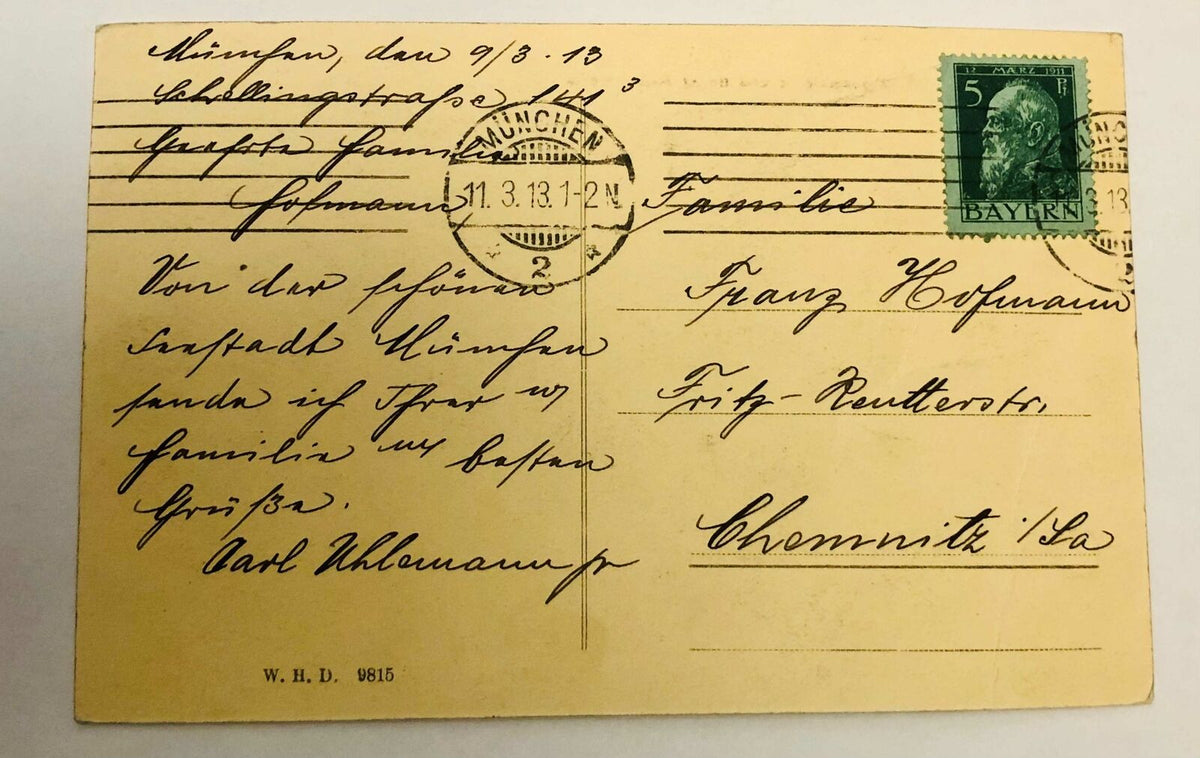 München, den 9/3. 13
Schellingstraße 141 3
Geehrte Familie
Hofmann
Von der schönen
Seestadt München
sende ich Ihrer w
Familie besten
Grüße.
Carl Uhlemann jr
W. H. D. 9815
MÜNCHEN
11. 3. 13. 1-2 N.
2
12 MÄRZ 1911
5 Pf
BAYERN
Familie
Franz Hofmann
Fritz-Reutterstr.
Chemnitz i/Sa